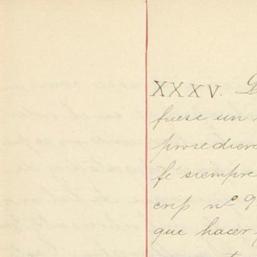 XXXV.
fuese un
prosediera
fe siempre
crip nº 9
que hacer